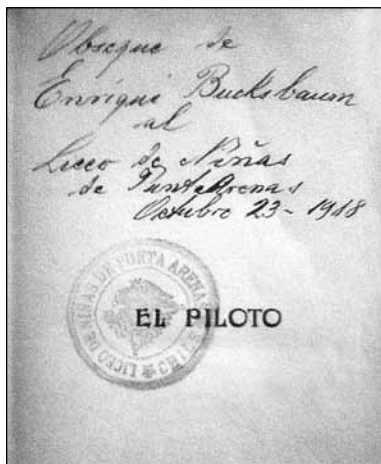 Obseque de
Enrique Bucksbaum
al
Liceo de Niñas
de Punta Arenas
Octubre 23 - 1918
LICEO DE NIÑAS DE PUNTA ARENAS
EL PILOTO